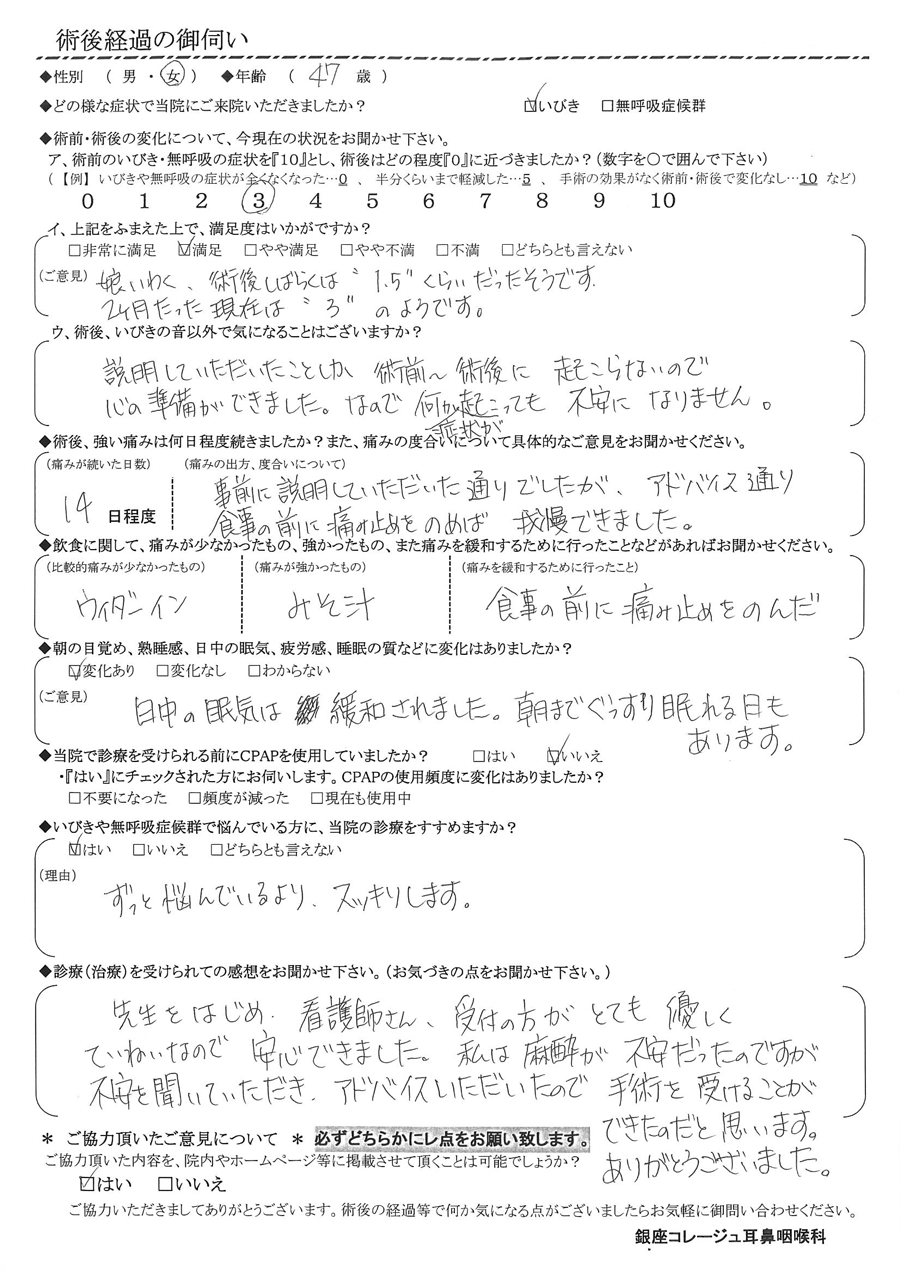 術後経過の御伺い
◆性別 ( 男 ・ 女 ) ◆年齢 ( 47 歳 )
◆どの様な症状で当院にご来院いただきましたか? ☑いびき □無呼吸症候群
◆術前・術後の変化について、今現在の状況をお聞かせ下さい。
ア、術前のいびき・無呼吸の症状を『10』とし、術後はどの程度『0』に近づきましたか?(数字を〇で囲んで下さい)
(【例】いびきや無呼吸の症状が全くなくなった…0 、 半分くらいまで軽減した…5 、 手術の効果がなく術前・術後で変化なし…10 など)
0 1 2 3 4 5 6 7 8 9 10
イ、上記をふまえた上で、満足度はいかがですか?
□非常に満足 ☑満足 □やや満足 □やや不満 □不満 □どちらとも言えない
(ご意見) 娘いわく、術後しばらくは"1.5"くらいだったそうです.
2ヶ月たった現在は"3"のようです。
ウ、術後、いびきの音以外で気になることはございますか?
説明していただいたことしか、術前〜術後に 起こらないので
心の準備ができました。なので 何か起こっても 不安に なりません。
症状が
◆術後、強い痛みは何日程度続きましたか?また、痛みの度合いについて具体的なご意見をお聞かせください。
(痛みが続いた日数) (痛みの出方、度合いについて)
事前に説明していただいた通りでしたが、アドバイス通り
14 日程度 食事の前に痛み止めをのめば 我慢できました。
◆飲食に関して、痛みが少なかったもの、強かったもの、また痛みを緩和するために行ったことなどがあればお聞かせください。
(比較的痛みが少なかったもの) (痛みが強かったもの) (痛みを緩和するために行ったこと)
ウイダーイン みそ汁 食事の前に痛み止めをのんだ
◆朝の目覚め、熟睡感、日中の眠気、疲労感、睡眠の質などに変化はありましたか?
☑変化あり □変化なし □わからない
(ご意見) 日中の眠気は 緩和されました。朝までぐっすり眠れる日も
あります。
◆当院で診療を受けられる前にCPAPを使用していましたか? □はい ☑いいえ
・『はい』にチェックされた方にお伺いします。CPAPの使用頻度に変化はありましたか?
□不要になった □頻度が減った □現在も使用中
◆いびきや無呼吸症候群で悩んでいる方に、当院の診療をすすめますか?
☑はい □いいえ □どちらとも言えない
(理由) ずっと悩んでいるより、スッキリします。
◆診療(治療)を受けられての感想をお聞かせ下さい。(お気づきの点をお聞かせください。)
先生をはじめ、看護師さん、受付の方が とても 優しく
ていねいなので 安心できました。私は麻酔が 不安だったのですが
不安を聞いていただき、アドバイスいただいたので 手術を受けることが
できたのだと思います。
ありがとうございました。
* ご協力頂いたご意見について * 必ずどちらかにレ点をお願い致します。
ご協力頂いた内容を、院内やホームページ等に掲載させて頂くことは可能でしょうか?
☑はい □いいえ
ご協力いただきましてありがとうございます。術後の経過等で何か気になる点がございましたらお気軽に御問い合わせください。
銀座コレージュ耳鼻咽喉科